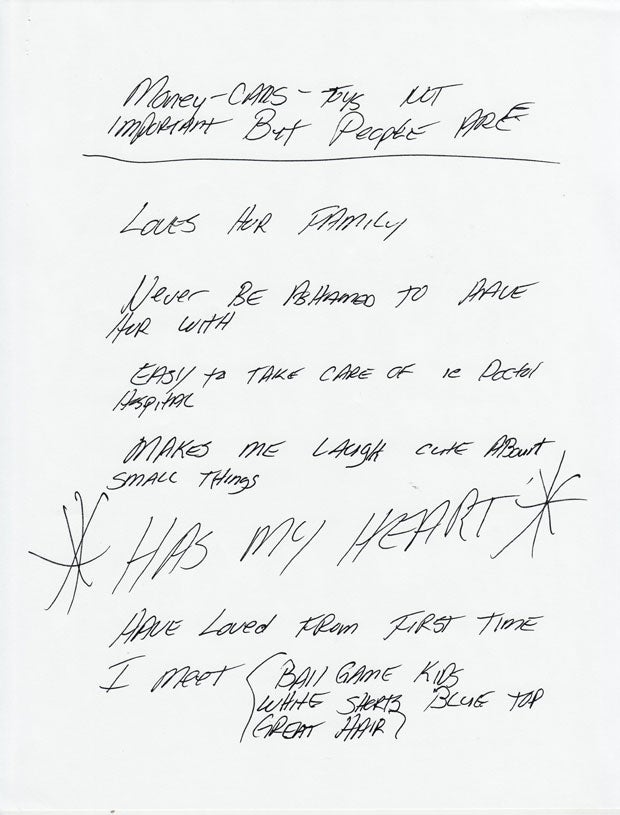 Money-CARS-TOYS NOT
IMPORTANT BUT PEOPLE ARE
LOVES HUR FAMILY
Never BE ASHAMED TO HAVE
HUR WITH
EASY to TAKE CARE OF ie Doctor
HOSPITAL
MAKES ME LAUgh CUTE ABOUT
SMALL THings
HAS MY HEART
HAVE LOVED FROM FIRST TIME
I MEET ( BAll GAME KIDS
WHITE SHORTS BLUE TOP
GREAT HAIR )